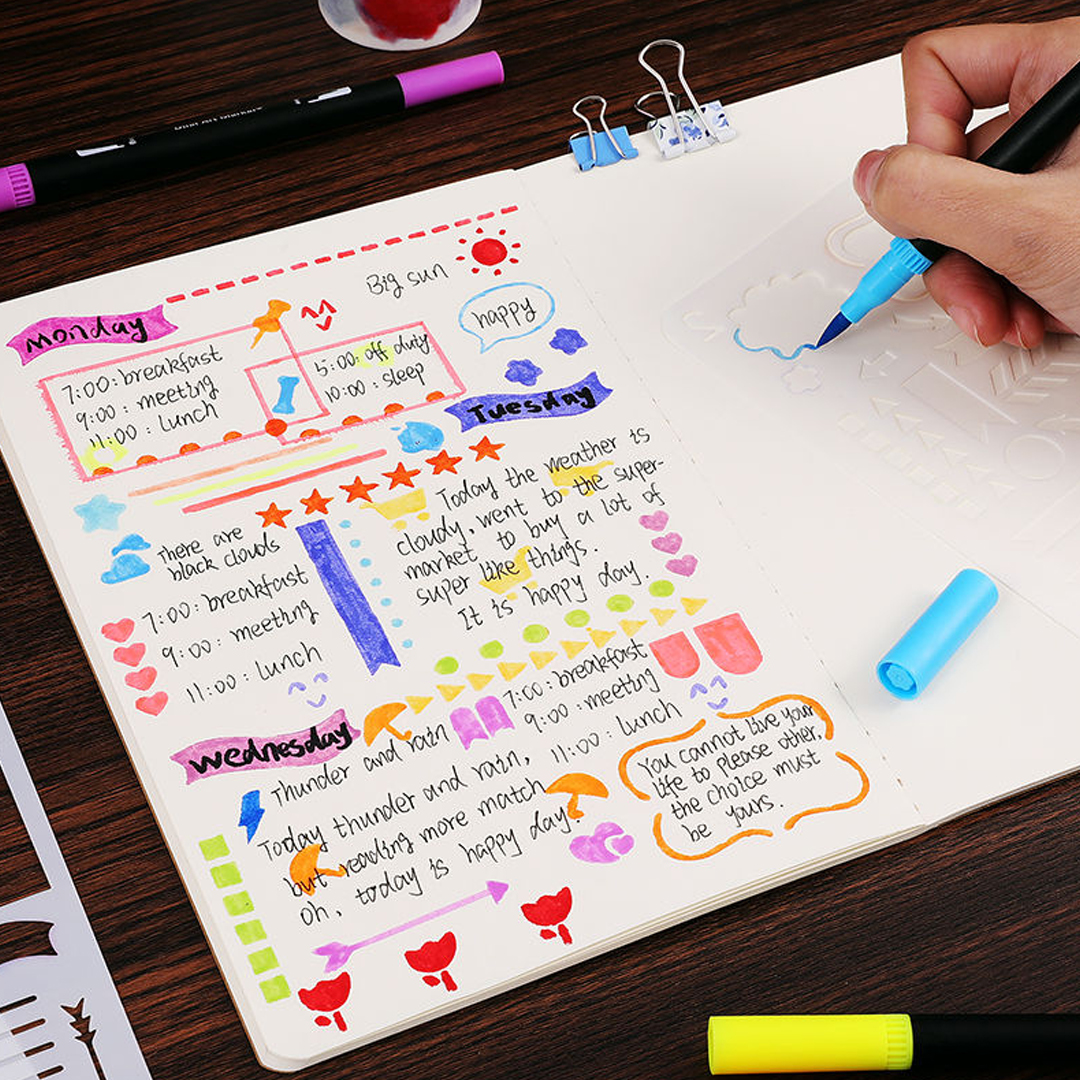 Big sun
Monday
happy
7:00: breakfast
9:00: meeting
11:00: lunch
5:00: off duty
10:00: sleep
Tuesday
There are
black clouds
7:00: breakfast
9:00: meeting
11:00: lunch
Today the weather is
cloudy, went to the super-
market to buy a lot of
super like things.
It is happy day.
Wednesday
Thunder and rain
7:00: breakfast
9:00: meeting
11:00: lunch
Today thunder and rain,
but reading more match
oh, today is happy day!
You cannot live your
life to please other,
the choice must
be yours.